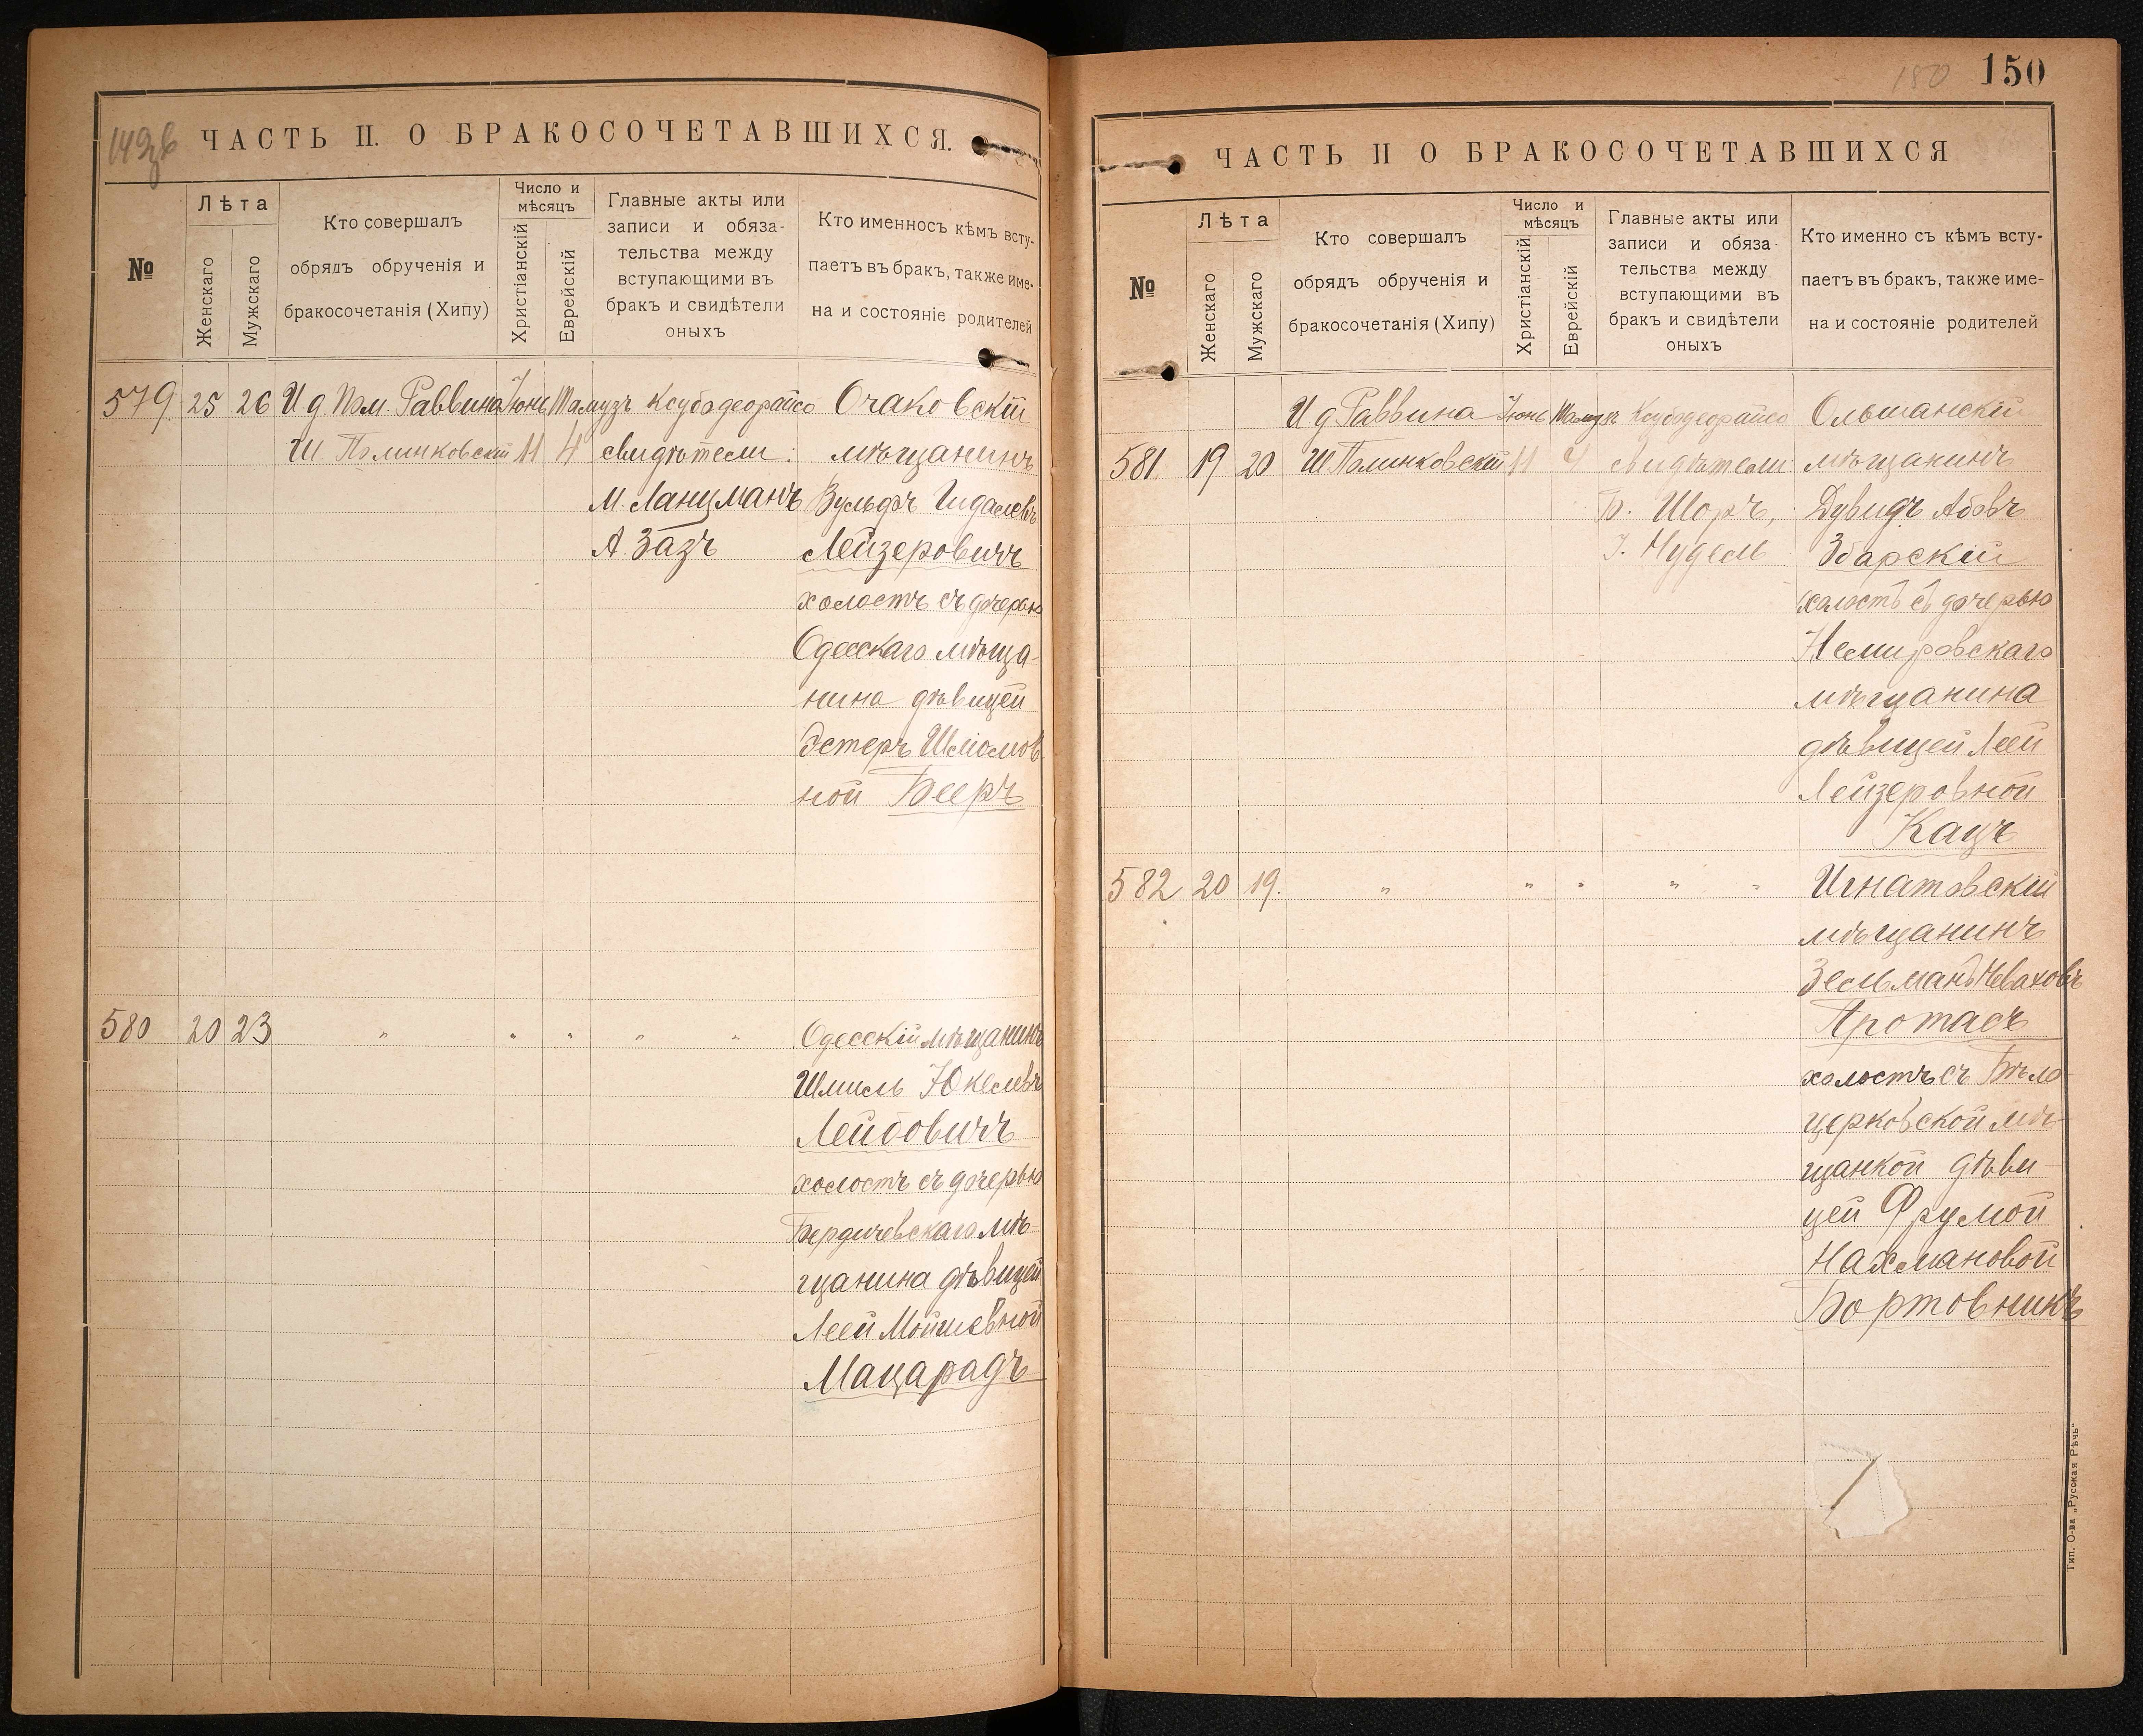 149об
ЧАСТЬ II. О БРАКОСОЧЕТАВШИХСЯ.
№
Лѣта
Женскаго
Мужскаго
Кто совершалъ
обрядъ обрученія и
бракосочетанія (Хипу)
Число и
мѣсяцъ
Христіанскій
Еврейскій
Главные акты или
записи и обяза-
тельства между
вступающими въ
бракъ и свидѣтели
оныхъ
Кто именносъ кѣмъ всту-
паетъ въ бракъ, также име-
на и состояніе родителей
579. 25 26 И д Пом. Раввина Іюнь Тамузъ Ксубадеорайсо Очаковскій
Ш Полинковскій 11 4 свидѣтели: мѣщанинъ
М. Ланцманъ Вульфъ Гидалевъ
А. Зазъ Лейзеровичъ
холостъ съ дочерью
Одесскаго мѣща-
нина дѣвицей
Эстеръ Шліомов
ной Бееръ
580 20 23 " " " " " Одесскій мѣщанинъ
Шмиль Юкелевъ
Лейбовичъ
холостъ съ дочерью
Бердичевскаго мѣ-
щанина дѣвицей
Леей Мойшевной
Мацарадъ
180 150
ЧАСТЬ II О БРАКОСОЧЕТАВШИХСЯ
№
Лѣта
Женскаго
Мужскаго
Кто совершалъ
обрядъ обрученія и
бракосочетанія (Хипу)
Число и
мѣсяцъ
Христіанскій
Еврейскій
Главные акты или
записи и обяза-
тельства между
вступающими въ
бракъ и свидѣтели
оныхъ
Кто именно съ кѣмъ всту-
паетъ въ бракъ, также име-
на и состояніе родителей
И д Раввина Іюнь Тамузъ Ксубадеорайсо Ольшанскій
581. 19 20 Ш. Полинковскій 11 4 свидѣтели мѣщанинъ
Б. Шоръ, Дувидъ Абовъ
І. Нудель Збарскій
холостъ съ дочерью
Немировскаго
мѣщанина
дѣвицей Леей
Лейзеровной
Кацъ
582 20 19. " " " " " Игнатовскій
мѣщанинъ
Зельманъ Чеваховъ
Протасъ
холостъ съ Бѣло-
церковской мѣ-
щанкой дѣви-
цей Фрумой
Нахмановой
Бортовникъ
Тип. О-ва „Русская Рѣчь"